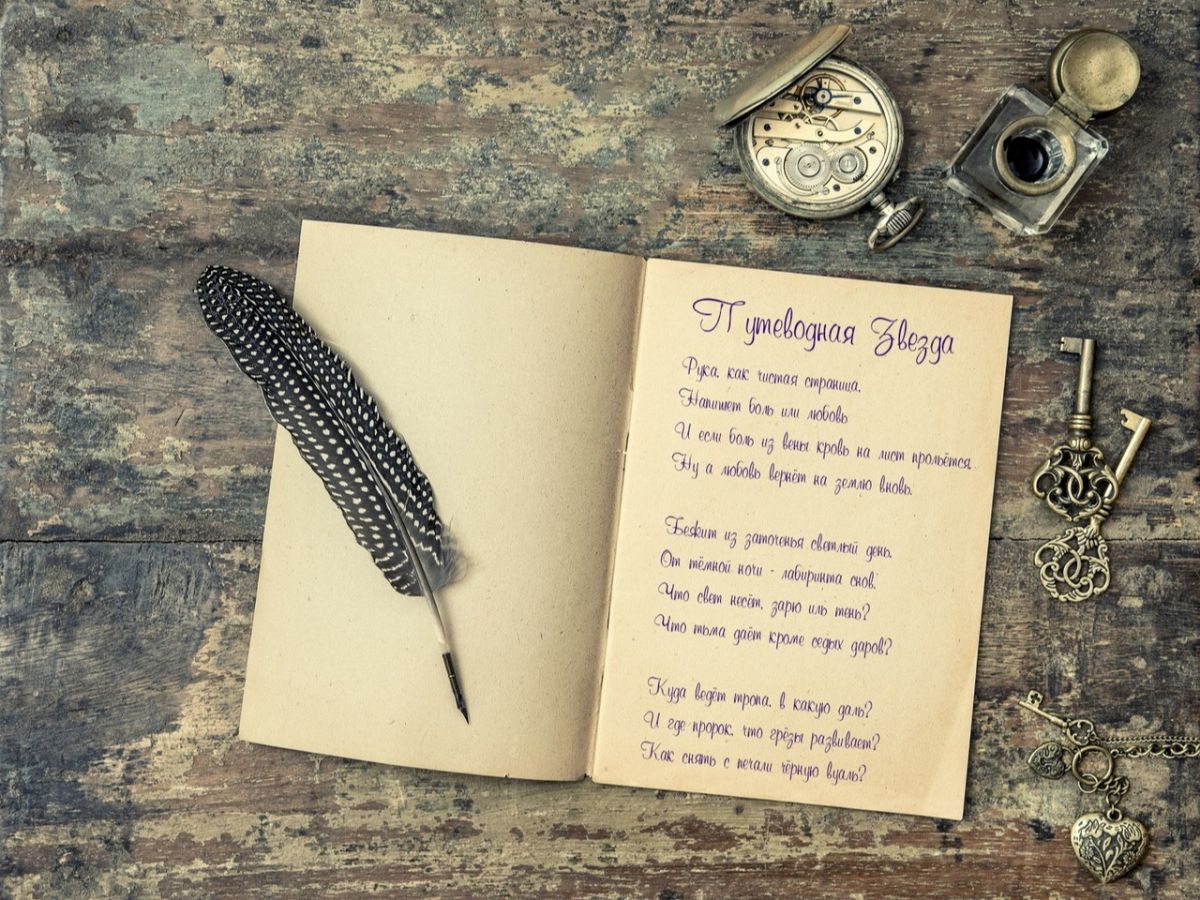 Путеводная Звезда
Рука, как чистая страница,
Напишет боль или любовь
И если боль из вены кровь на лист прольётся...
Ну а любовь вернёт на землю вновь.
Бежит из заточенья светлый день,
От тёмной ночи - лабиринта снов.
Что свет несёт, зарю иль тень?
Что тьма даёт кроме седых даров?
Куда ведёт тропа, в какую даль?
И где пророк, что грёзы развивает?
Как снять с печали чёрную вуаль?